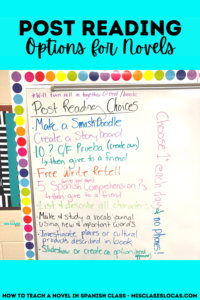 POST READING
Options for Novels
Post Reading Choices
Make a Smash Doodle
Create a Storyboard
10 ? C/F Prueba (create own)
↳ then give to a friend
Free Write Retell
5 Spanish Comprehension ?s
↳ then give to a friend
List & describe all characters
Make & study a vocab
using new & important words
Investigate places or cultural
products described in book
Slideshow or create
Choose 1 each day & no phones!
HOW TO TEACH A NOVEL IN SPANISH CLASS - MISCLASESLOCAS.COM